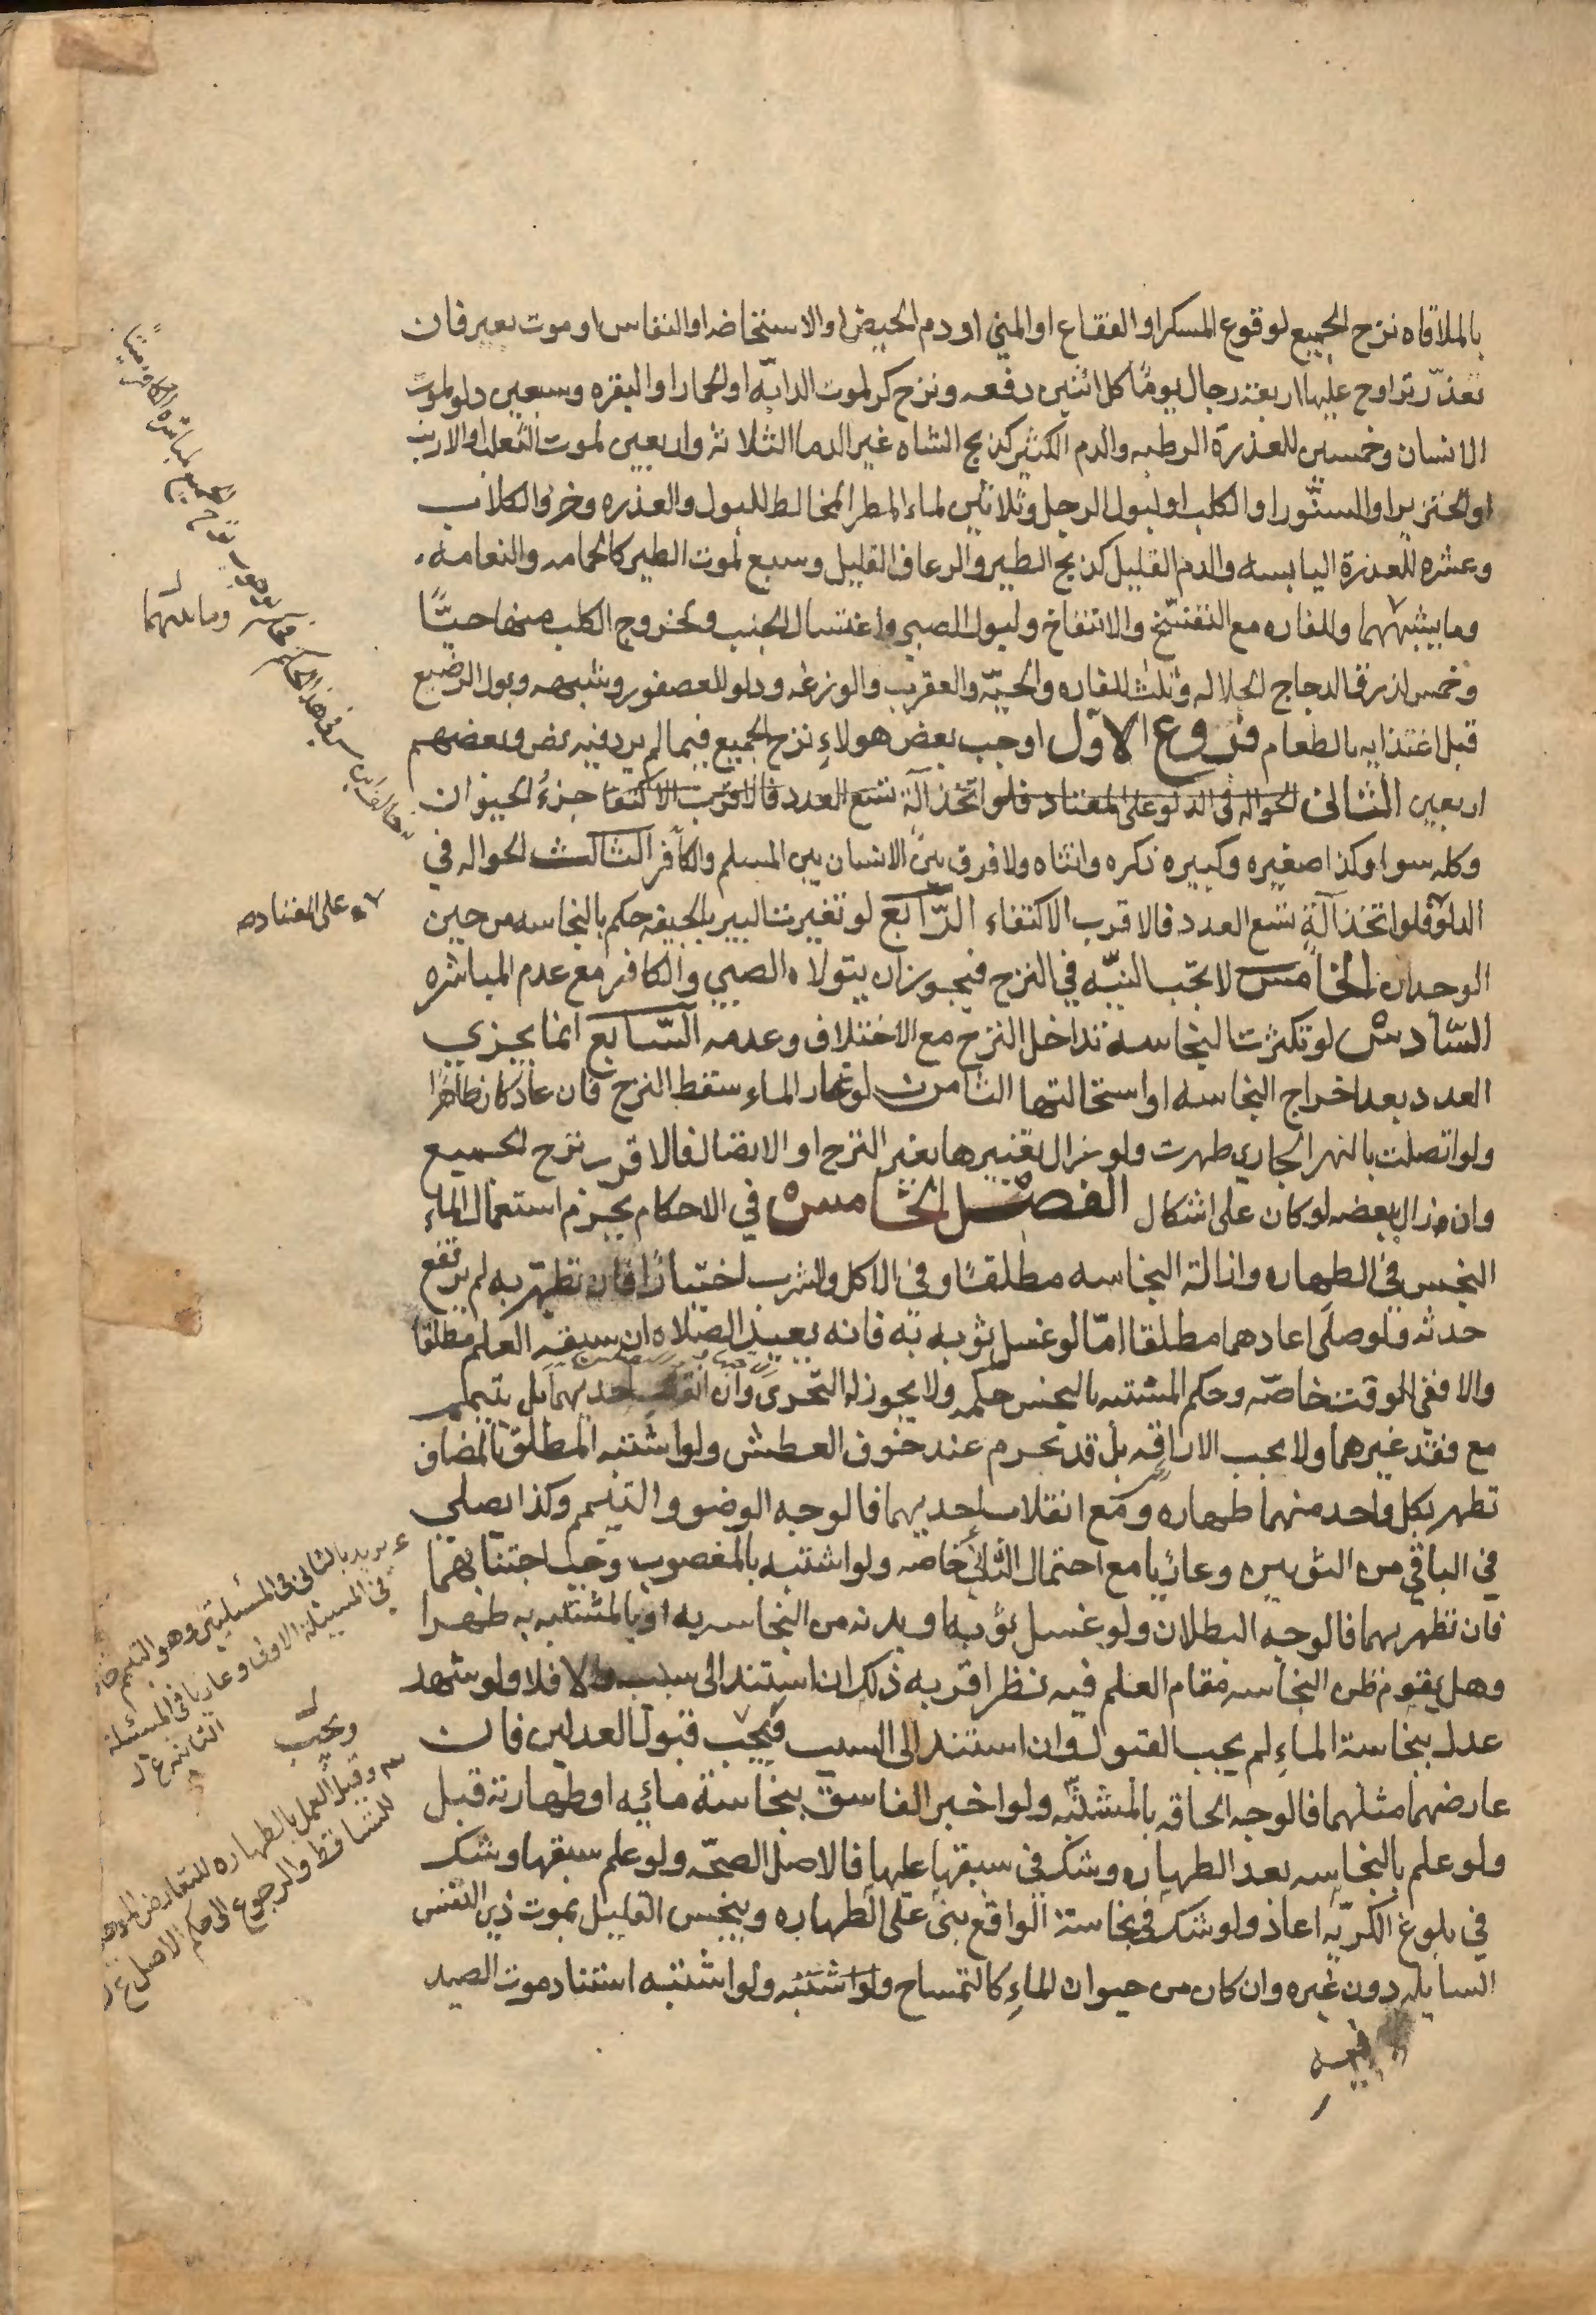 بالملاقاه نزح الجميع لوقوع المسكر او الفقاع او المني او دم الحيض او الاستحاضه او النفاس او موت بعير فان
تعذّر تراوح عليها اربعة رجال يومًا كل اثنين دفعه ونزح كر لموت الدابّه او الحمار او البقره وسبعين دلو لموت
الانسان وخمسين للعذرة الرطبه والدم الكثير كذبح الشاه غير الدما الثلاثة واربعين لموت الثعلب او الارنب
او الخنزير او السنّور او الكلب او لبول الرجل وثلاثين لماء المطر المخالط للبول والعذره وخرؤ الكلاب
وعشره للعذرة اليابسه والدم القليل كذبح الطير والرعاف القليل وسبع لموت الطير كالحمامه والنعامه
وما بينهما وللفاره مع التفسّخ والانتفاخ ولبول الصبي واغتسال الجنب ولخروج الكلب منها حيًّا
وخمس لذرق الدجاج الجلاله وثلث للفاره والحيّه والعقرب والوزغه ودلو للعصفور وشبهه وبول الرضيع
قبل اغتذايه بالطعام فروع الاول اوجب بعض هولاءِ نزح الجميع فيما لم يرد فيه نص وبعضهم
اربعين الثاني الحواله في الدلو على المعتاد فلو اتخذ آلة تسع العدد فالاقرب الاكتفا جزءُ الحيوان
وكله سوا وكذا صغيره وكبيره ذكره وانثاه ولا فرق بين الانسان بين المسلم والكافر الثالث الحواله في
الدلو فلو اتخذ آلةٍ تسع العدد فالاقرب الاكتفاء الرّابع لو تغيرت البير بالجيفه حكم بالنجاسه من حين
الوجدان الخامس لا تجب النيّه في النزح فيجوز ان يتولاه الصبي والكافر مع عدم المباشره
السّادس لو تكثرت النجاسه تداخل النزح مع الاختلاف وعدمه السّابع انما يجزي
العدد بعد اخراج النجاسه او استحالتها الثامن لو غار الماء سقط النزح فان عاد كان طاهرًا
ولو اتصلت بالنهر الجاري طهرت ولو زال تغيرها بغير النزح او الاتصال فالاقرب نزح الجميع
وان زال ببعضه لو كان على اشكال الفصل الخامس في الاحكام يحرم استعمال الماءِ
النجس في الطهاره وازالة النجاسه مطلقًا وفي الاكل والشرب اختيارًا فان تطهر به لم يرتفع
حدثه فلو صلى اعادهما مطلقا امّا لو غسل ثوبه به فانه يعيد الصلاه ان سبقه العلم مطلقا
والا ففي الوقت خاصّه وحكم المشتبه بالنجس حكمه ولا يجوز له التحرّى وان انقلب احديهما بل يتيمم
مع فقد غيرهما ولا يجب الاراقه بل قد تحرم عند خوف العطش ولو اشتبه المطلق بالمضاف
تطهر بكل واحد منهما طهاره ومع انقلاب احديهما فالوجه الوضو والتيمم وكذا يصلي
في الباقي من الثوبين وعاريا مع احتمال الثاني خاصه ولو اشتبه بالمغصوب وجب اجتنابهما
فان تطهر بهما فالوجه البطلان ولو غسل ثوبه او بدنه من النجاسه به او بالمشتبه به طهرا
وهل يقوم ظن النجاسه مقام العلم فيه نظر اقربه ذلك ان استند الى سبب والا فلا ولو شهد
عدل بنجاسة الماءِ لم يجب القبول وان استند الى السبب فيجب قبول العدلين فان
عارضهما مثلهما فالوجه الحاقه بالمشتبّه ولو اخبر الفاسق بنجاسة مائه او طهارته قبل
ولو علم بالنجاسه بعد الطهاره وشك في سبقها عليها فالاصل الصحّه ولو علم سبقها وشك
في بلوغ الكرّيه اعاد ولو شك في نجاسة الواقع بنى على الطهاره وينجس القليل بموت ذي النفس
السايله دون غيره وان كان من حيوان الماءِ كالتمساح ولو اشتبه ولو اشتبه استناد موت الصيد
فيه
وما بينهما
على المعتاد صح
يريد بالثاني في المسئلتين وهو التيمم
في المسئلة الاولى وعاريا في المسئلة
الثانيه
ويجب
وقبل العمل بالطهاره للتعارض
للتساقط والرجوع الى حكم الاصل